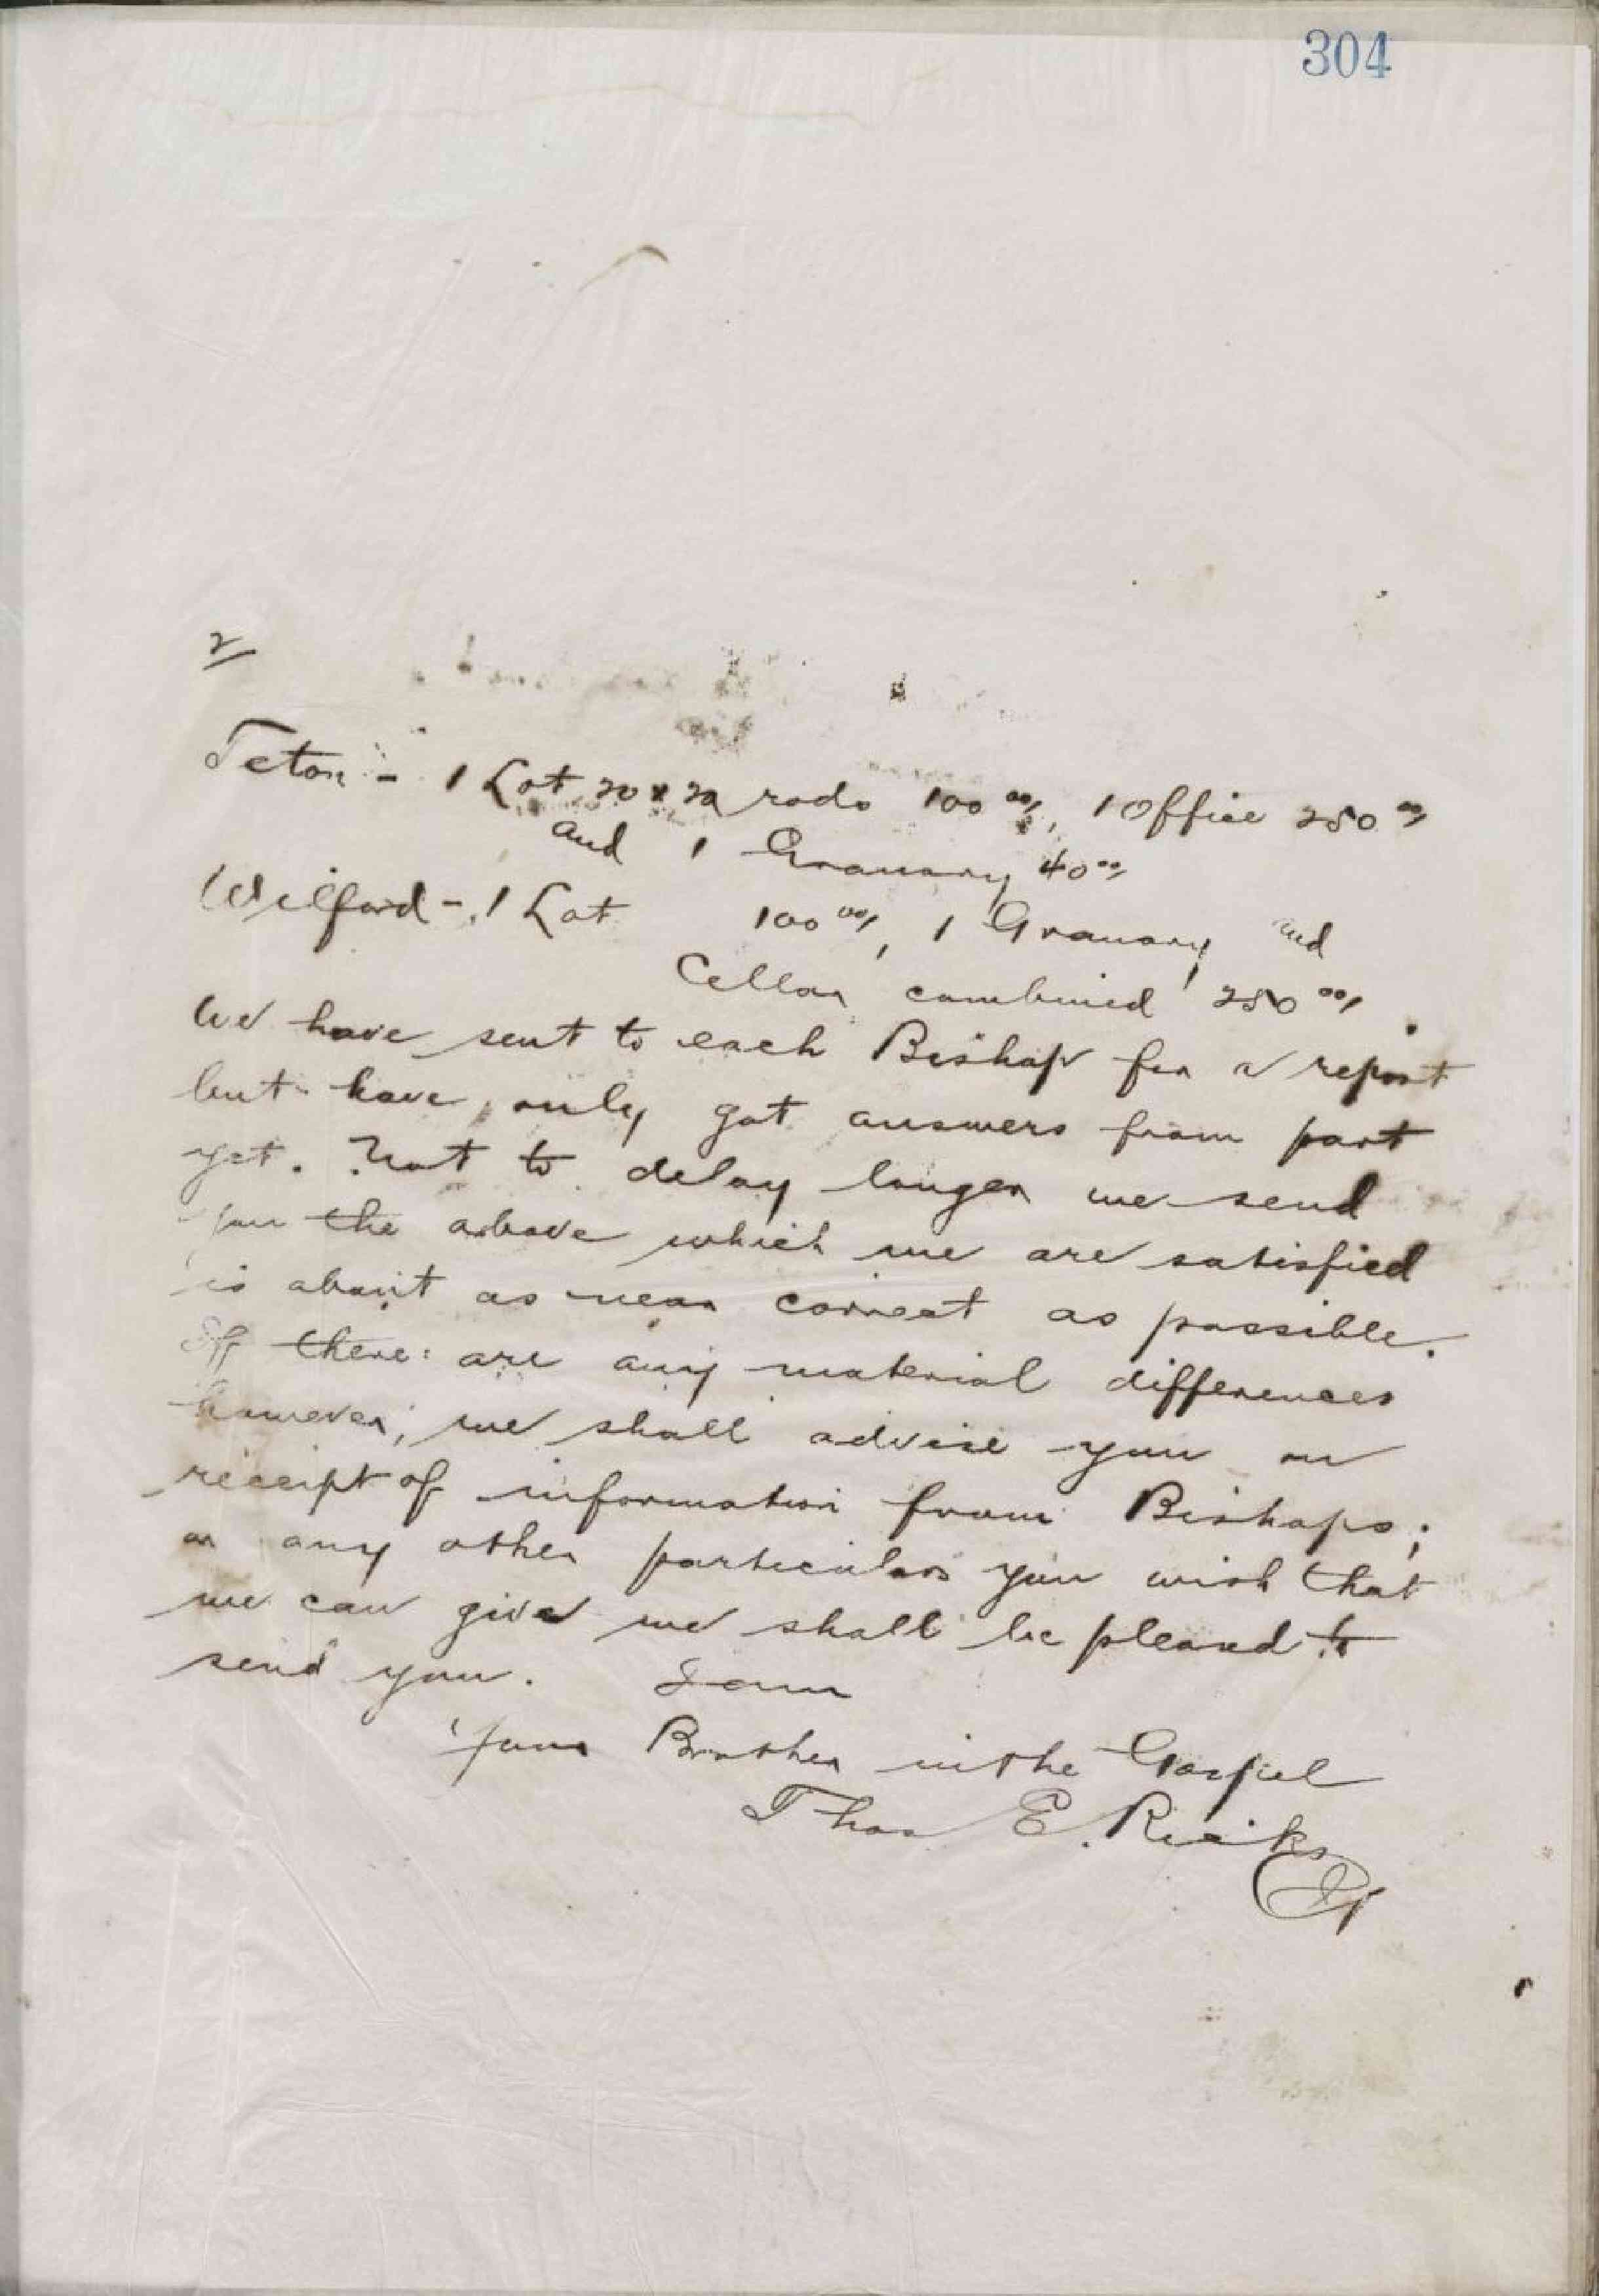 304
2
Teton - 1 Lot 20 x 20 rods 100 00/, 1 Office 250 00/
and 1 Granary 40 00/
Wilford - 1 Lot 100 00/, 1 Granary and
Cellar combined 250 00/.
We have sent to each Bishop for a report
but have only got answers from part
yet. Not to delay longer we send
you the above which we are satisfied
is about as near correct as possible.
If there are any material differences
however, we shall advise you on
receipt of information from Bishops;
or any other particulars you wish that
we can give we shall be pleased to
send you. I am
Your Brother in the Gospel
Thos E. Ricks